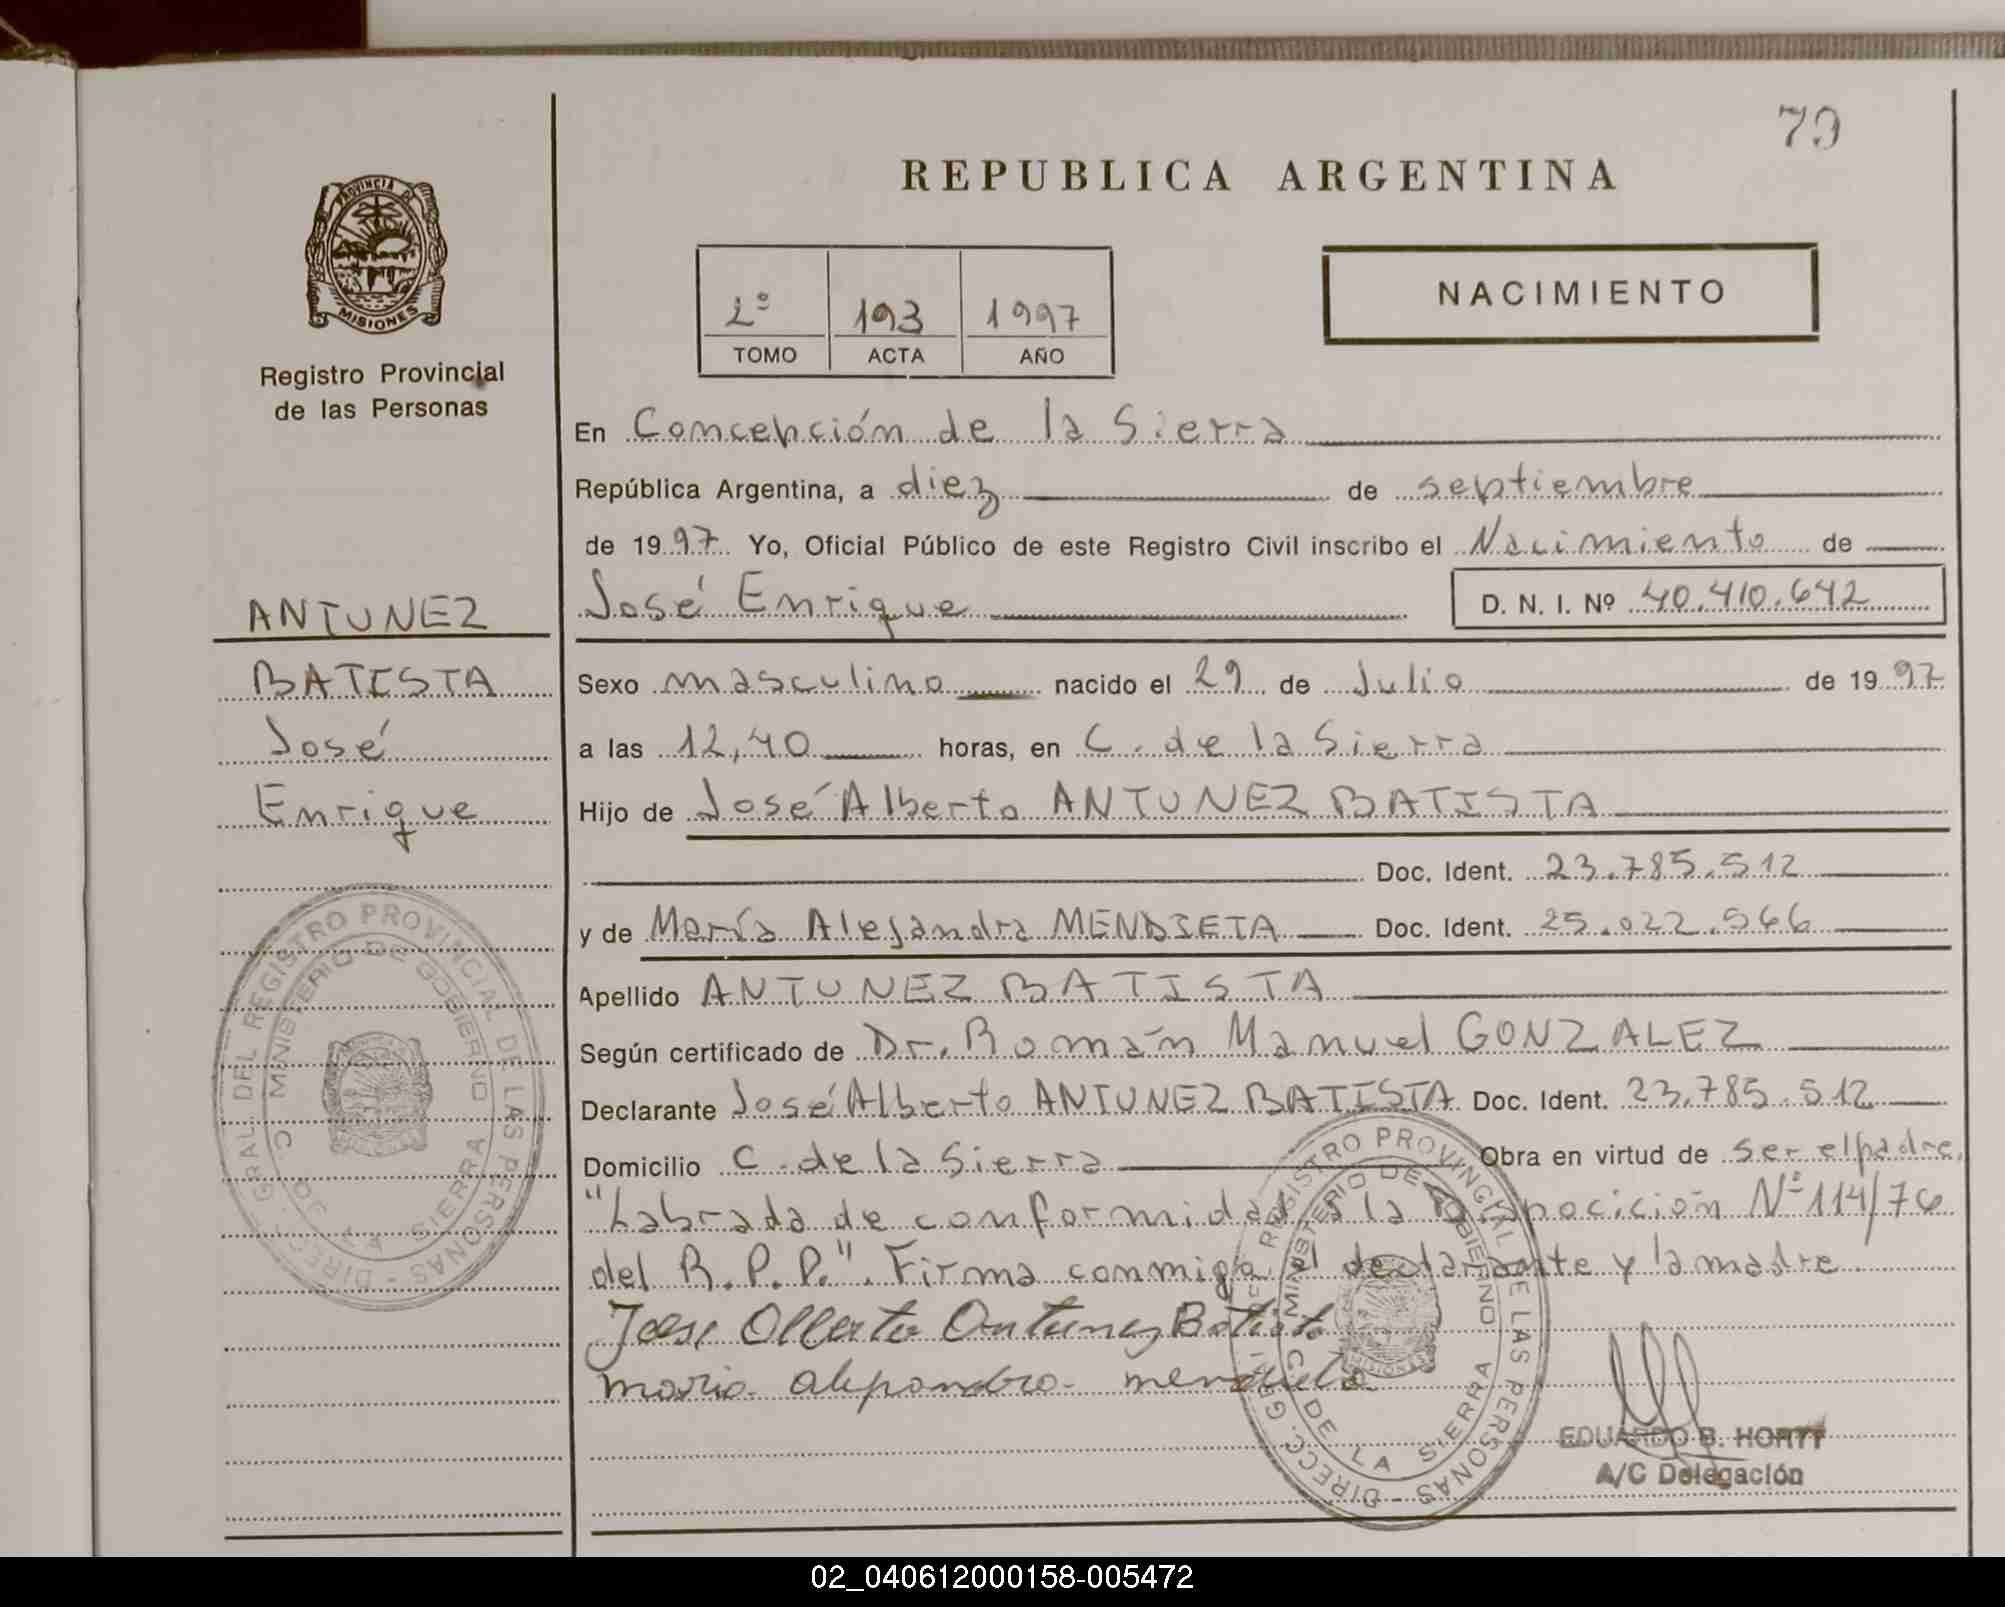 79
REPUBLICA ARGENTINA
PROVINCIA DE
MISIONES
Registro Provincial
de las Personas
2º 193 1997
TOMO ACTA AÑO
NACIMIENTO
En Concepción de la Sierra
República Argentina, a diez de septiembre
de 1997 Yo, Oficial Público de este Registro Civil inscribo el Nacimiento de
José Enrique D. N. I. Nº 40.410.642
ANTUNEZ
BATISTA
José
Enrique
Sexo masculino nacido el 29 de Julio de 1997
a las 12,40 horas, en C. de la Sierra
Hijo de José Alberto ANTUNEZ BATISTA
Doc. Ident. 23.785.512
y de María Alejandra MENDIETA Doc. Ident. 25.022.566
Apellido ANTUNEZ BATISTA
Según certificado de Dr. Román Manuel GONZALEZ
Declarante José Alberto ANTUNEZ BATISTA Doc. Ident. 23.785.512
Domicilio C. de la Sierra Obra en virtud de ser el padre.
"Labrada de conformidad a la Disposición Nº 114/76
del R.P.P.". Firma conmigo el declarante y la madre
Jose Alberto Antunez Batista
maria alejandra mendieta
DIRECC. GRAL. DEL REGISTRO PROVINCIAL DE LAS PERSONAS
MINISTERIO DE GOBIERNO
C. DE LA SIERRA
EDUARDO B. HORTT
A/C Delegación
02_040612000158-005472